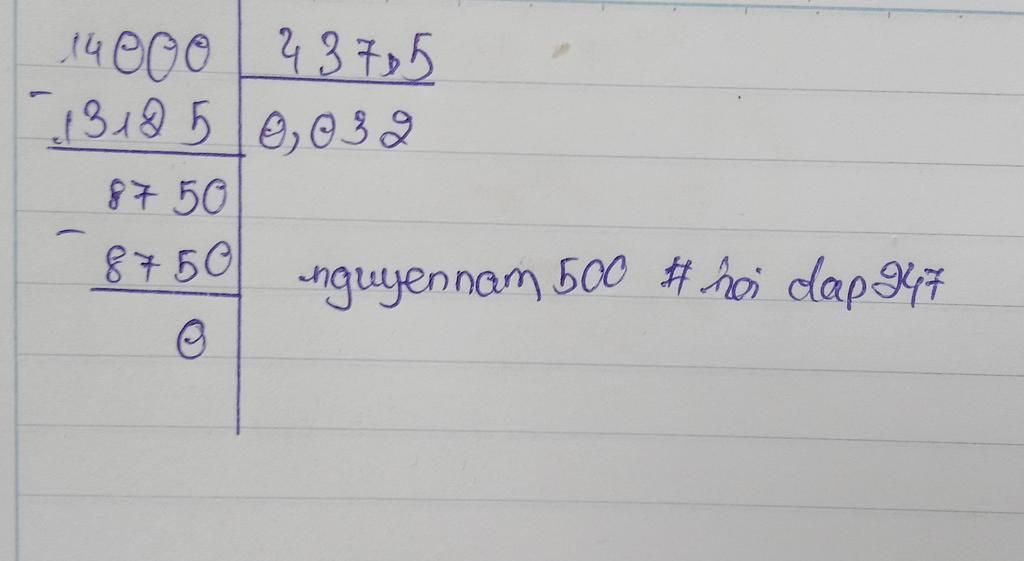 14000 437,5
- 13125 0,032
8750
- 8750 nguyennam500 # hoi dap247
0